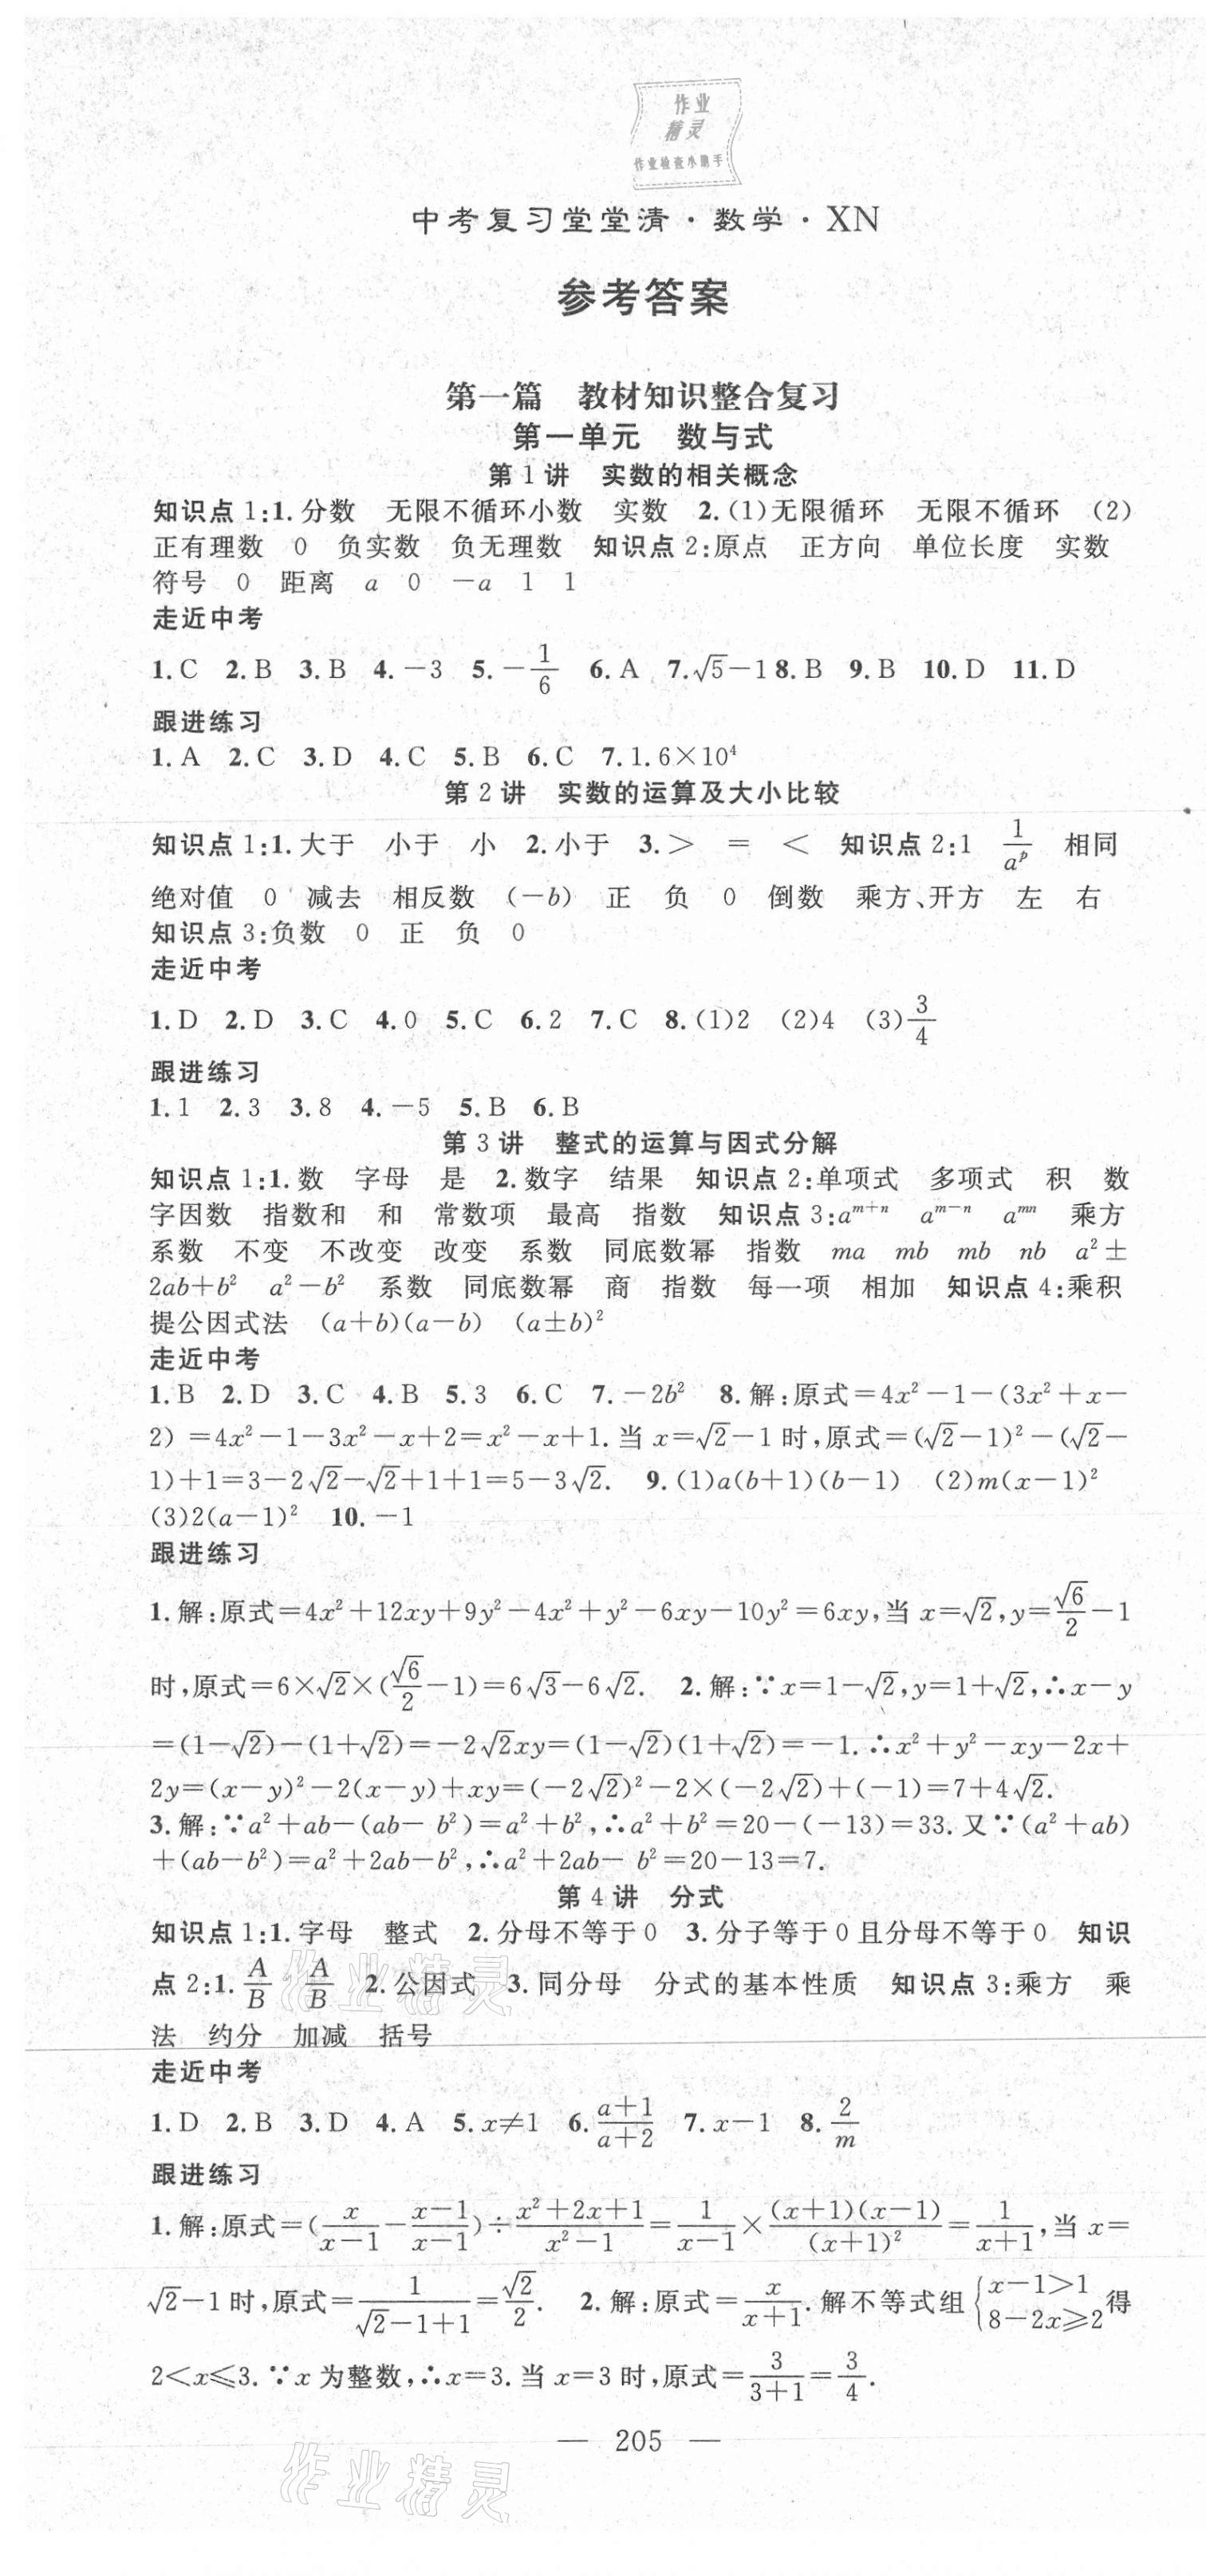 作业
精灵
作业检查小助手
中考复习堂堂清·数学·XN
参考答案
第一篇　教材知识整合复习
第一单元　数与式
第1讲　实数的相关概念
知识点1:1.分数　无限不循环小数　实数　2.(1)无限循环　无限不循环　(2)
正有理数　0　负实数　负无理数　知识点2:原点　正方向　单位长度　实数
符号　0　距离　a　0　-a　1　1
走近中考
1.C　2.B　3.B　4.-3　5.-1/6　6.A　7.√5-1 8.B　9.B　10.D　11.D
跟进练习
1.A　2.C　3.D　4.C　5.B　6.C　7.1.6×10⁴
第2讲　实数的运算及大小比较
知识点1:1.大于　小于　小　2.小于　3.>　=　<　知识点2:1　1/aᵖ　相同
绝对值　0　减去　相反数　(-b)　正　负　0　倒数　乘方、开方　左　右
知识点3:负数　0　正　负　0
走近中考
1.D　2.D　3.C　4.0　5.C　6.2　7.C　8.(1)2　(2)4　(3)3/4
跟进练习
1.1　2.3　3.8　4.-5　5.B　6.B
第3讲　整式的运算与因式分解
知识点1:1.数　字母　是　2.数字　结果　知识点2:单项式　多项式　积　数
字因数　指数和　和　常数项　最高　指数　知识点3:aᵐ⁺ⁿ　aᵐ⁻ⁿ　aᵐⁿ　乘方
系数　不变　不改变　改变　系数　同底数幂　指数　ma　mb　mb　nb　a²±
2ab+b²　a²-b²　系数　同底数幂　商　指数　每一项　相加　知识点4:乘积
提公因式法　(a+b)(a-b)　(a±b)²
走近中考
1.B　2.D　3.C　4.B　5.3　6.C　7.-2b²　8.解:原式=4x²-1-(3x²+x-
2)=4x²-1-3x²-x+2=x²-x+1.当x=√2-1时,原式=(√2-1)²-(√2-
1)+1=3-2√2-√2+1+1=5-3√2.　9.(1)a(b+1)(b-1)　(2)m(x-1)²
(3)2(a-1)²　10.-1
跟进练习
1.解:原式=4x²+12xy+9y²-4x²+y²-6xy-10y²=6xy,当x=√2,y=√6/2-1
时,原式=6×√2×(√6/2-1)=6√3-6√2.　2.解:∵x=1-√2,y=1+√2,∴x-y
=(1-√2)-(1+√2)=-2√2xy=(1-√2)(1+√2)=-1.∴x²+y²-xy-2x+
2y=(x-y)²-2(x-y)+xy=(-2√2)²-2×(-2√2)+(-1)=7+4√2.
3.解:∵a²+ab-(ab-b²)=a²+b²,∴a²+b²=20-(-13)=33.又∵(a²+ab)
+(ab-b²)=a²+2ab-b²,∴a²+2ab-b²=20-13=7.
第4讲　分式
知识点1:1.字母　整式　2.分母不等于0　3.分子等于0且分母不等于0　知识
点2:1.A/B　A/B　2.公因式　3.同分母　分式的基本性质　知识点3:乘方　乘
法　约分　加减　括号
作业精灵
走近中考
1.D　2.B　3.D　4.A　5.x≠1　6.(a+1)/(a+2)　7.x-1　8.2/m
跟进练习
1.解:原式=(x/(x-1)-(x-1)/(x-1))÷(x²+2x+1)/(x²-1)=1/(x-1)×(x+1)(x-1)/(x+1)²=1/(x+1),当x=
√2-1时,原式=1/(√2-1+1)=√2/2.　2.解:原式=x/(x+1).解不等式组{x-1>1 8-2x≥2得
2<x≤3.∵x为整数,∴x=3.当x=3时,原式=3/(3+1)=3/4.
— 205 —
作业精灵